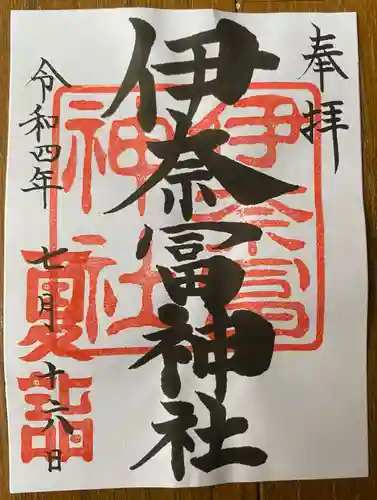 奉拝
伊奈冨神社
伊奈冨
神社
令和四年 七月十六日
夏詣